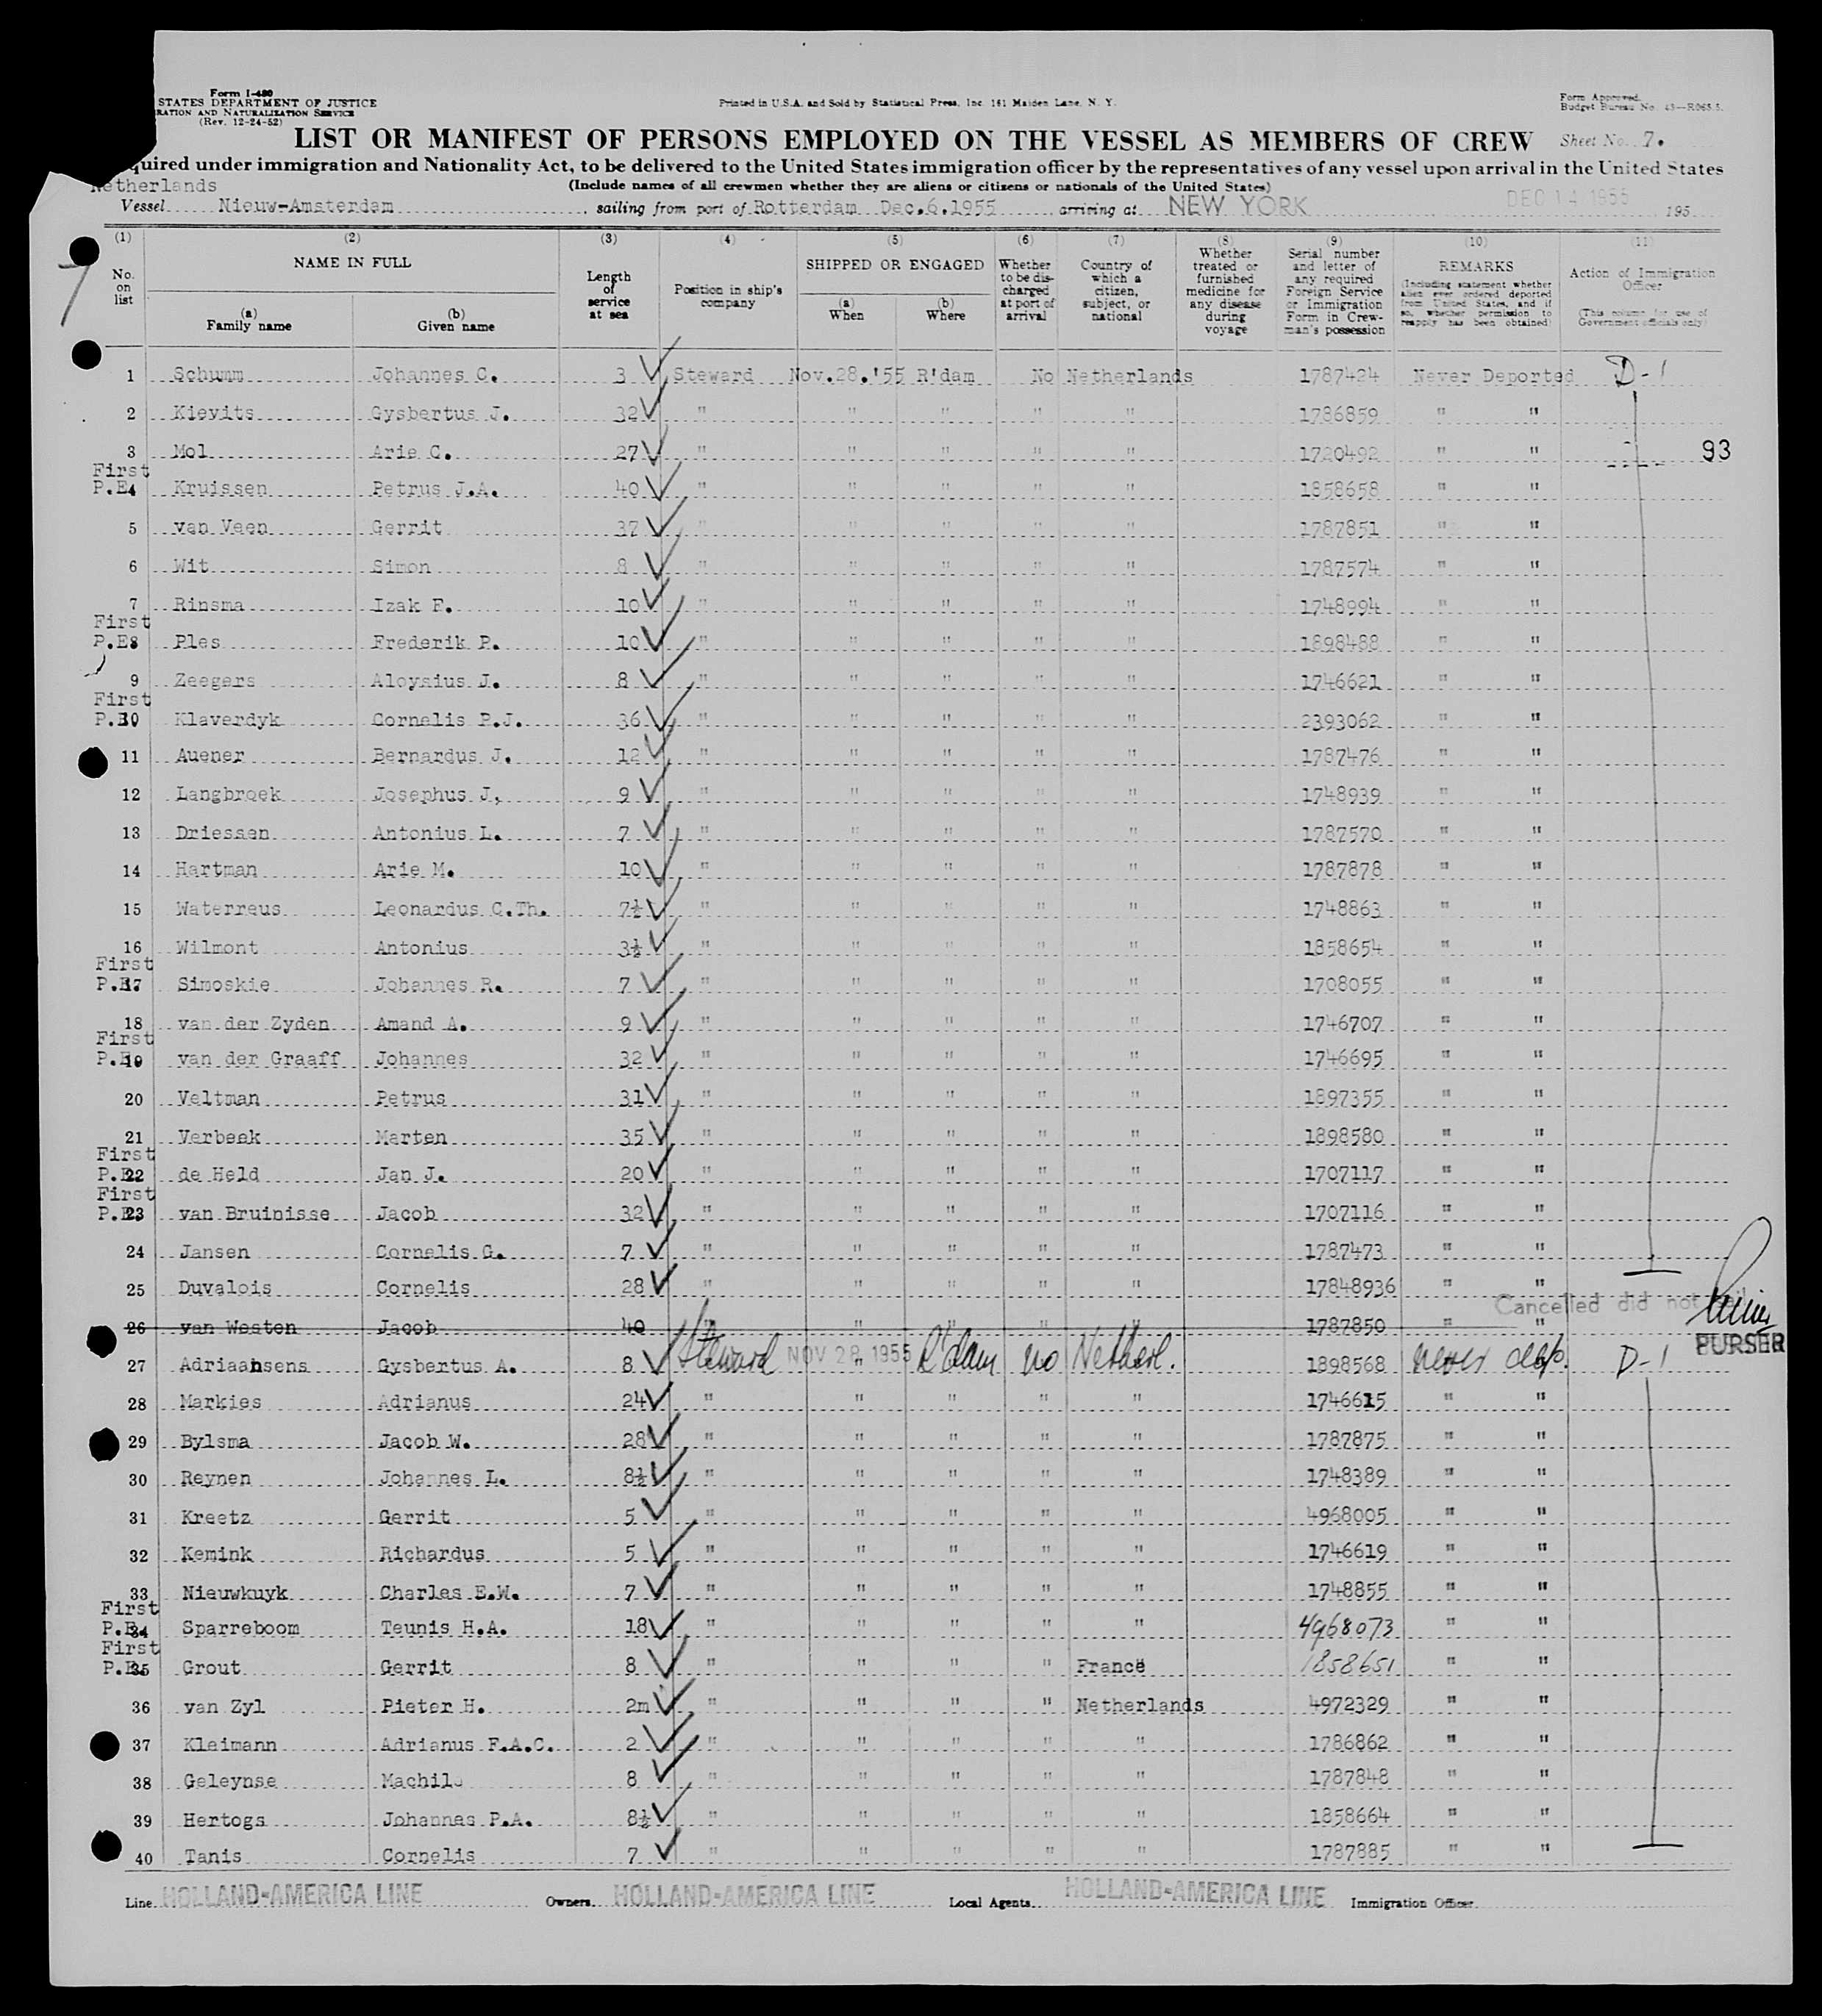 Form I-480
STATES DEPARTMENT OF JUSTICE
RATION AND NATURALIZATION SERVICE
(Rev. 12-24-52)
Printed in U.S.A. and Sold by Statistical Press, Inc. 161 Maiden Lane, N. Y.
Form Approved.
Budget Bureau No. 43—R065.5.
LIST OR MANIFEST OF PERSONS EMPLOYED ON THE VESSEL AS MEMBERS OF CREW Sheet No. 7.
quired under immigration and Nationality Act, to be delivered to the United States immigration officer by the representatives of any vessel upon arrival in the United States
Netherlands (Include names of all crewmen whether they are aliens or citizens or nationals of the United States)
Vessel Nieuw-Amsterdam, sailing from port of Rotterdam Dec.6.1955 arriving at NEW YORK DEC 14 1955 195
7
(1) No. on list
(2) NAME IN FULL
(a) Family name
(b) Given name
(3) Length of service at sea
(4) Position in ship's company
(5) SHIPPED OR ENGAGED
(a) When
(b) Where
(6) Whether to be discharged at port of arrival
(7) Country of which a citizen, subject, or national
(8) Whether treated or furnished medicine for any disease during voyage
(9) Serial number and letter of any required Foreign Service or Immigration Form in Crewman's possession
(10) REMARKS (Including statement whether alien ever ordered deported from United States, and if so, whether permission to reapply has been obtained)
(11) Action of Immigration Officer (This column for use of Government officials only)
1 Schumm Johannes C. 3 Steward Nov.28.'55 R'dam No Netherlands 1787424 Never Deported D-1
2 Kievits Gysbertus J. 32 " " " " " 1786859 " "
3 Mol Arie C. 27 " " " " " 1720492 " " 93
First
P.E4 Kruissen Petrus J.A. 40 " " " " " 1858658 " "
5 van Veen Gerrit 37 " " " " " 1787851 " "
6 Wit Simon 8 " " " " " 1787574 " "
7 Rinsma Izak F. 10 " " " " " 1748994 " "
First
P.E8 Ples Frederik P. 10 " " " " " 1898488 " "
9 Zeegers Aloysius J. 8 " " " " " 1746621 " "
First
P.E10 Klaverdyk Cornelis P.J. 36 " " " " " 2393062 " "
11 Auener Bernardus J. 12 " " " " " 1787476 " "
12 Langbroek Josephus J. 9 " " " " " 1748939 " "
13 Driessen Antonius L. 7 " " " " " 1787570 " "
14 Hartman Arie M. 10 " " " " " 1787878 " "
15 Waterreus Leonardus C.Th. 7½ " " " " " 1748863 " "
16 Wilmont Antonius 3½ " " " " " 1858654 " "
First
P.E17 Simoskie Johannes R. 7 " " " " " 1708055 " "
18 van der Zyden Amand A. 9 " " " " " 1746707 " "
First
P.E19 van der Graaff Johannes 32 " " " " " 1746695 " "
20 Veltman Petrus 31 " " " " " 1897355 " "
21 Verbeek Marten 35 " " " " " 1898580 " "
First
P.E22 de Held Jan J. 20 " " " " " 1707117 " "
First
P.E23 van Bruinisse Jacob 32 " " " " " 1707116 " "
24 Jansen Cornelis G. 7 " " " " " 1787473 " "
25 Duvalois Cornelis 28 " " " " " 17848936 " "
Cancelled did not
26 van Westen Jacob 40 " " " " " 1787850 " "
PURSER
27 Adriaansens Gysbertus A. 8 Steward NOV 28 1955 " R'dam no Netherl. 1898568 never dep. D-1
28 Markies Adrianus 24 " " " " " 1746615 " "
29 Bylsma Jacob W. 28 " " " " " 1787875 " "
30 Reynen Johannes L. 8½ " " " " " 1748389 " "
31 Kreetz Gerrit 5 " " " " " 4968005 " "
32 Kemink Richardus 5 " " " " " 1746619 " "
33 Nieuwkuyk Charles E.W. 7 " " " " " 1748855 " "
First
P.E34 Sparreboom Teunis H.A. 18 " " " " " 4968073 " "
First
P.E35 Grout Gerrit 8 " " " " France 1858651 " "
36 van Zyl Pieter H. 2m " " " " Netherlands 4972329 " "
37 Kleimann Adrianus F.A.C. 2 " " " " " 1786862 " "
38 Geleynse Machile 8 " " " " " 1787848 " "
39 Hertogs Johannes P.A. 8½ " " " " " 1858664 " "
40 Tanis Cornelis 7 " " " " " 1787885 " "
Line HOLLAND-AMERICA LINE Owners HOLLAND-AMERICA LINE Local Agents HOLLAND-AMERICA LINE Immigration Officer